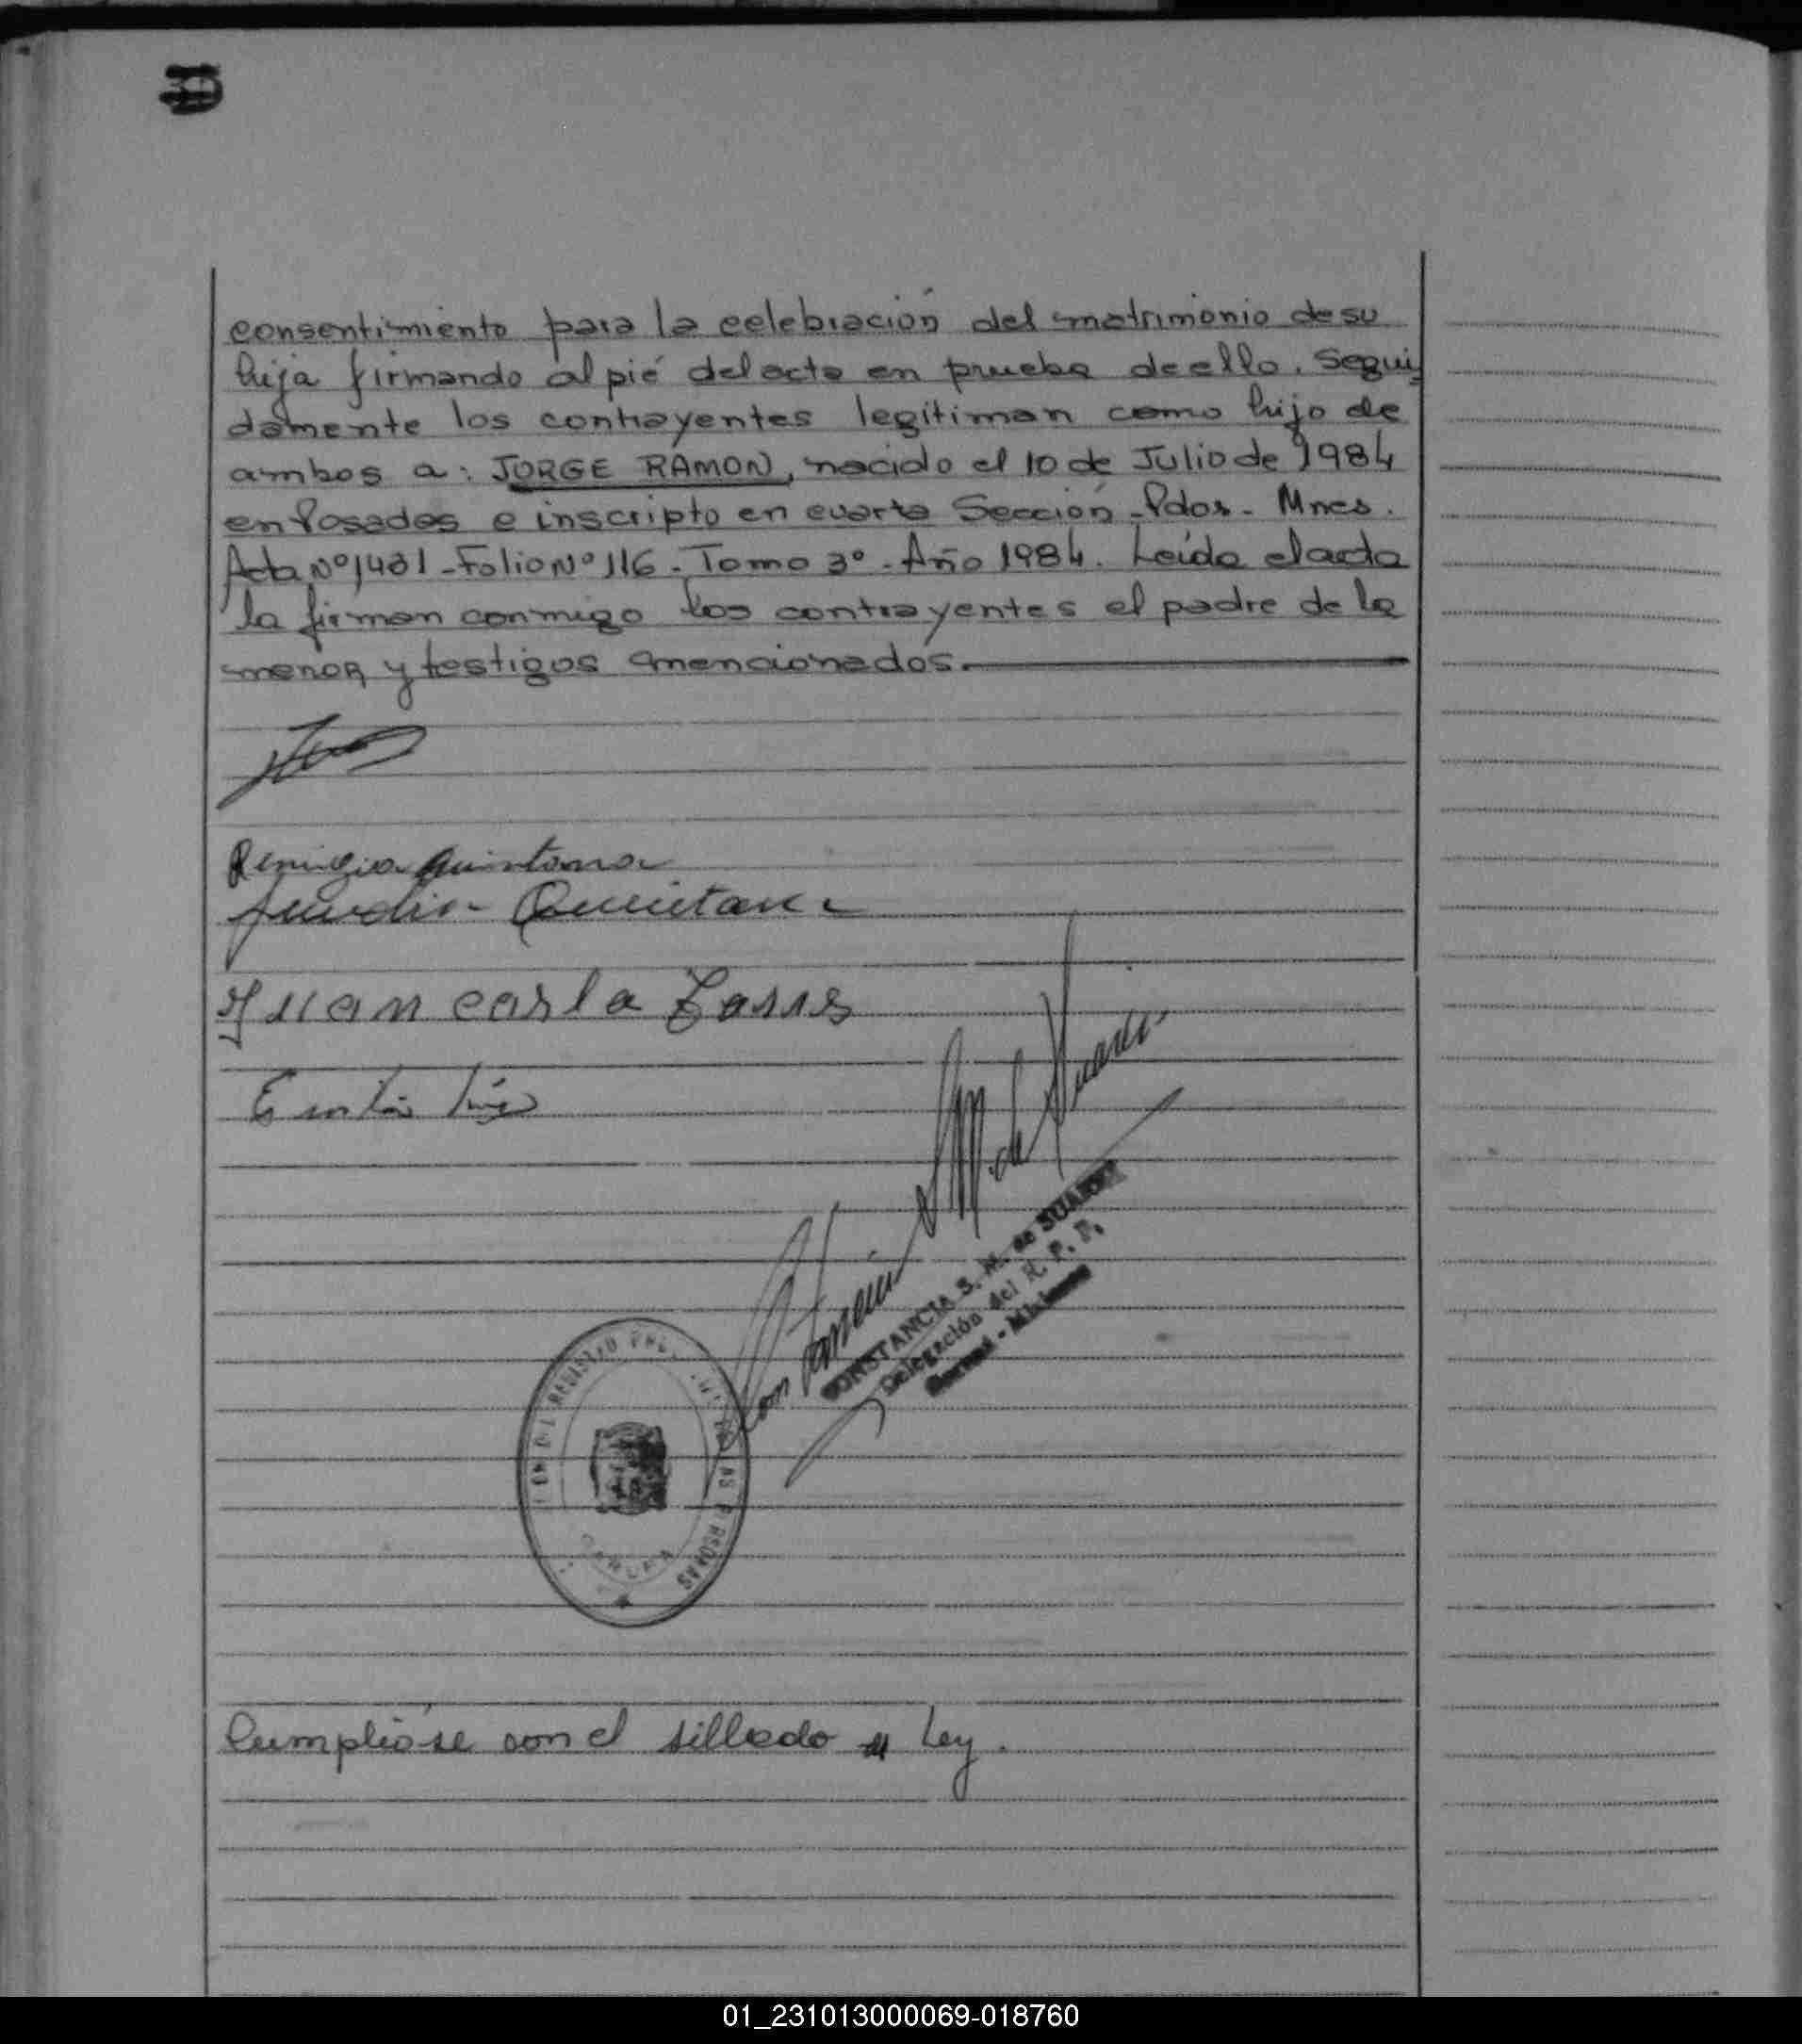 consentimiento para la celebración del matrimonio de su
hija firmando al pié del acta en prueba de ello. Segui
damente los contrayentes legítiman como hijo de
ambos a: JORGE RAMON, nacido el 10 de Julio de 1984
en Posadas e inscripto en cuarta Sección - Pdas - Mnes.
Acta Nº 1431 - Folio Nº 116 - Tomo 3º - Año 1984. Leída el acta
la firman conmigo los contrayentes el padre de la
menor y testigos mencionados.
Remigia Quintana
Quintana
Juan carla
M. de
CONSTANCIA S. M. de SUAREZ
Delegación del R. P. P.
Misiones
REGISTRO
LAS PERSONAS
Cumplióse con el sillado Ley.
01_231013000069-018760